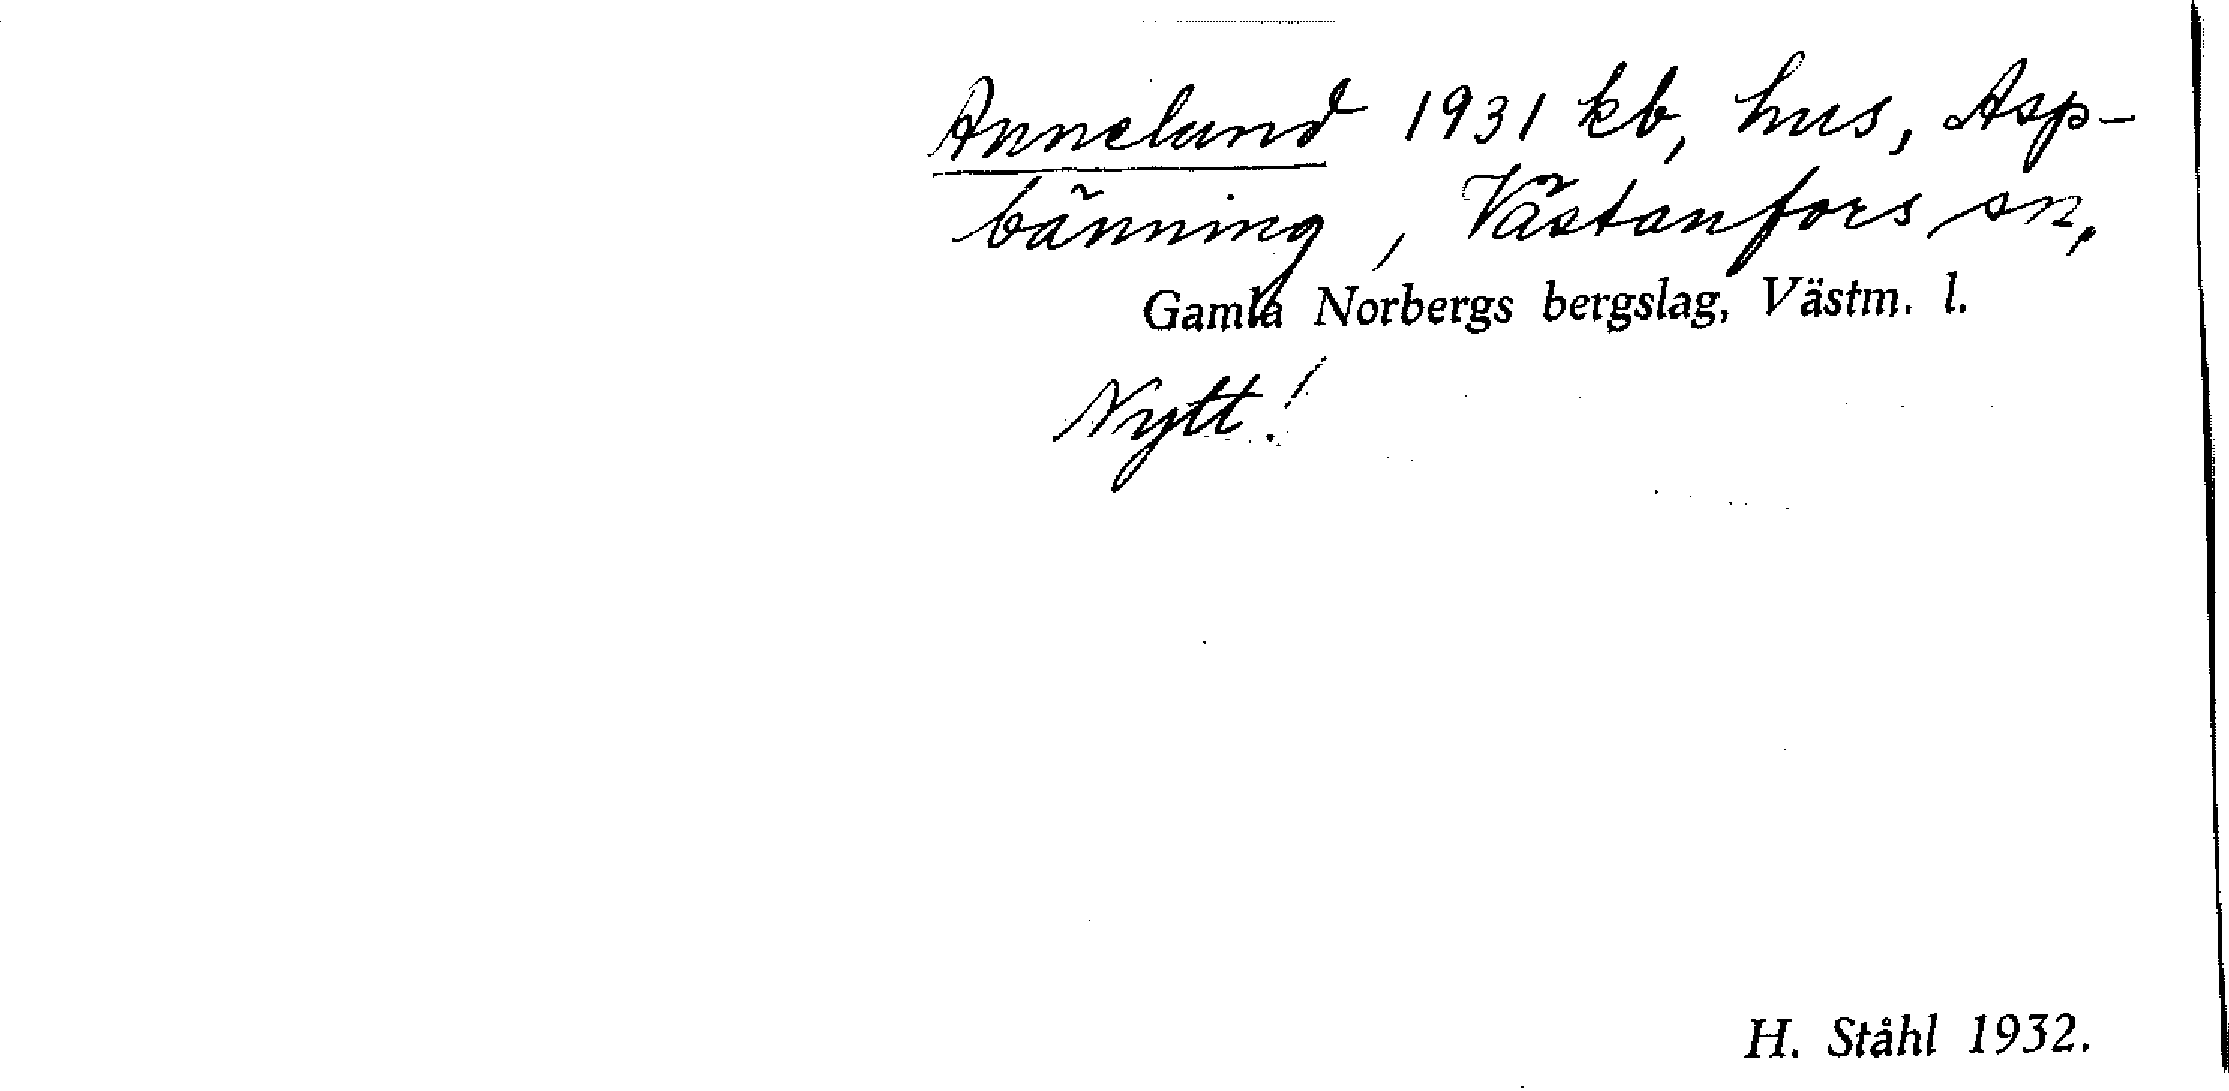 Annelund 1931 kb, hus, Asp-
bänning, Västanfors sn,
Gamla Norbergs bergslag, Västm. l.
Nytt!
H. Ståhl 1932.